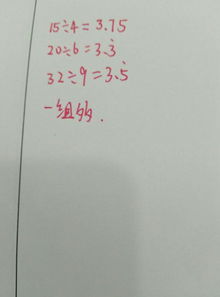 15÷4=3.75
20÷6=3.3̇
32÷9=3.5̇
一组的.